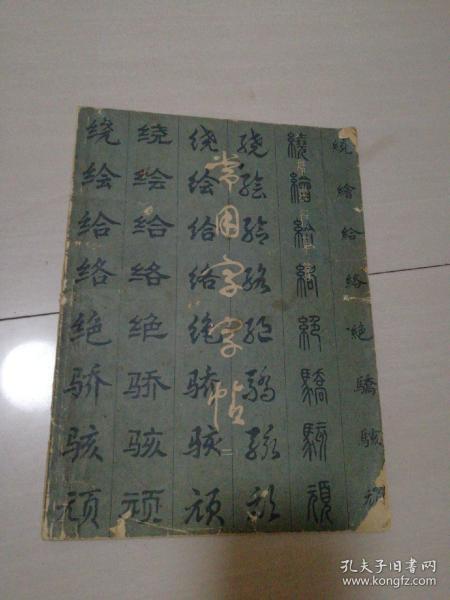 常用字字帖
二
绕绘给络绝骄骇顽
绕绘给络绝骄骇顽
绕绘给络绝骄骇顽
绕绘给络绝骄骇顽
繞繪給絡絕驕駭頑
繞繪給絡絕驕駭
孔夫子旧书网
www.kongfz.com